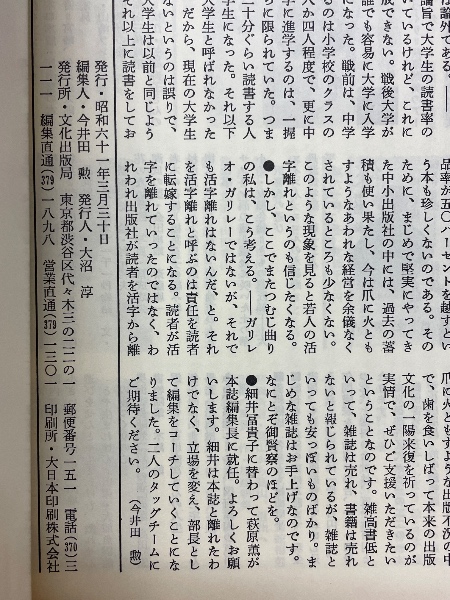 は論外である。――
論旨で大学生の読書率の
いているけれど、これに
成できない。戦後大学が
誰でも容易に大学に入学
になった。戦前は、中学
るのは小学校のクラスの
人か四人程度で、更に中
学に進学するのは、一握
ちに限られていた。つま
二十分ぐらい読書する人
学生になった。それ以下
大学生と呼ばれなかった
だから、現在の大学生
ないというのは誤りで、
大学生は以前と同じよう
それ以上に読書をしてお
品率が五〇パーセントを越すとい
う本も珍しくないのである。その
ために、まじめで堅実にやってき
た中小出版社の中には、過去の蓄
積も使い果たし、今は爪に火とも
すようなあわれな経営を余儀なく
されているところも少なくない。
このような現象を見ると若人の活
字離れというのも信じたくなる。
●しかし、ここでまたつむじ曲り
の私は、こう考える。――ガリレ
オ・ガリレーではないが、それで
も活字離れはないんだ、と。それ
を活字離れと呼ぶのは責任を読者
に転嫁することになる。読者が活
字を離れていったのではなく、わ
れわれ出版社が読者を活字から離
爪に火ともすような出版不況の中
で、歯を食いしばって本来の出版
文化の一陽来復を祈っているのが
実情で、ぜひご支援いただきたい
ということなのです。雑高書低と
いって、雑誌は売れ、書籍は売れ
ないと報じられているが、雑誌と
いっても安っぽいものばかり。ま
じめな雑誌はお手上げなのです。
なにとぞ御賢察のほどを。
●細井富貴子に替わって萩原薫が
本誌編集長に就任。よろしくお願
いします。細井は本誌と離れたわ
けでなく、立場を変え、部長とし
て編集をコーチしていくことにな
りました。二人のタッグチームに
ご期待ください。　（今井田　勲）
発行・昭和六十一年三月三十日
編集人・今井田　勲　発行人・大沼　淳
発行所・文化出版局　東京都渋谷区代々木三の二二の一　郵便番号一五一　電話(370)三
一一一　編集直通(379)一八九八　営業直通(379)一三〇一　印刷所・大日本印刷株式会社